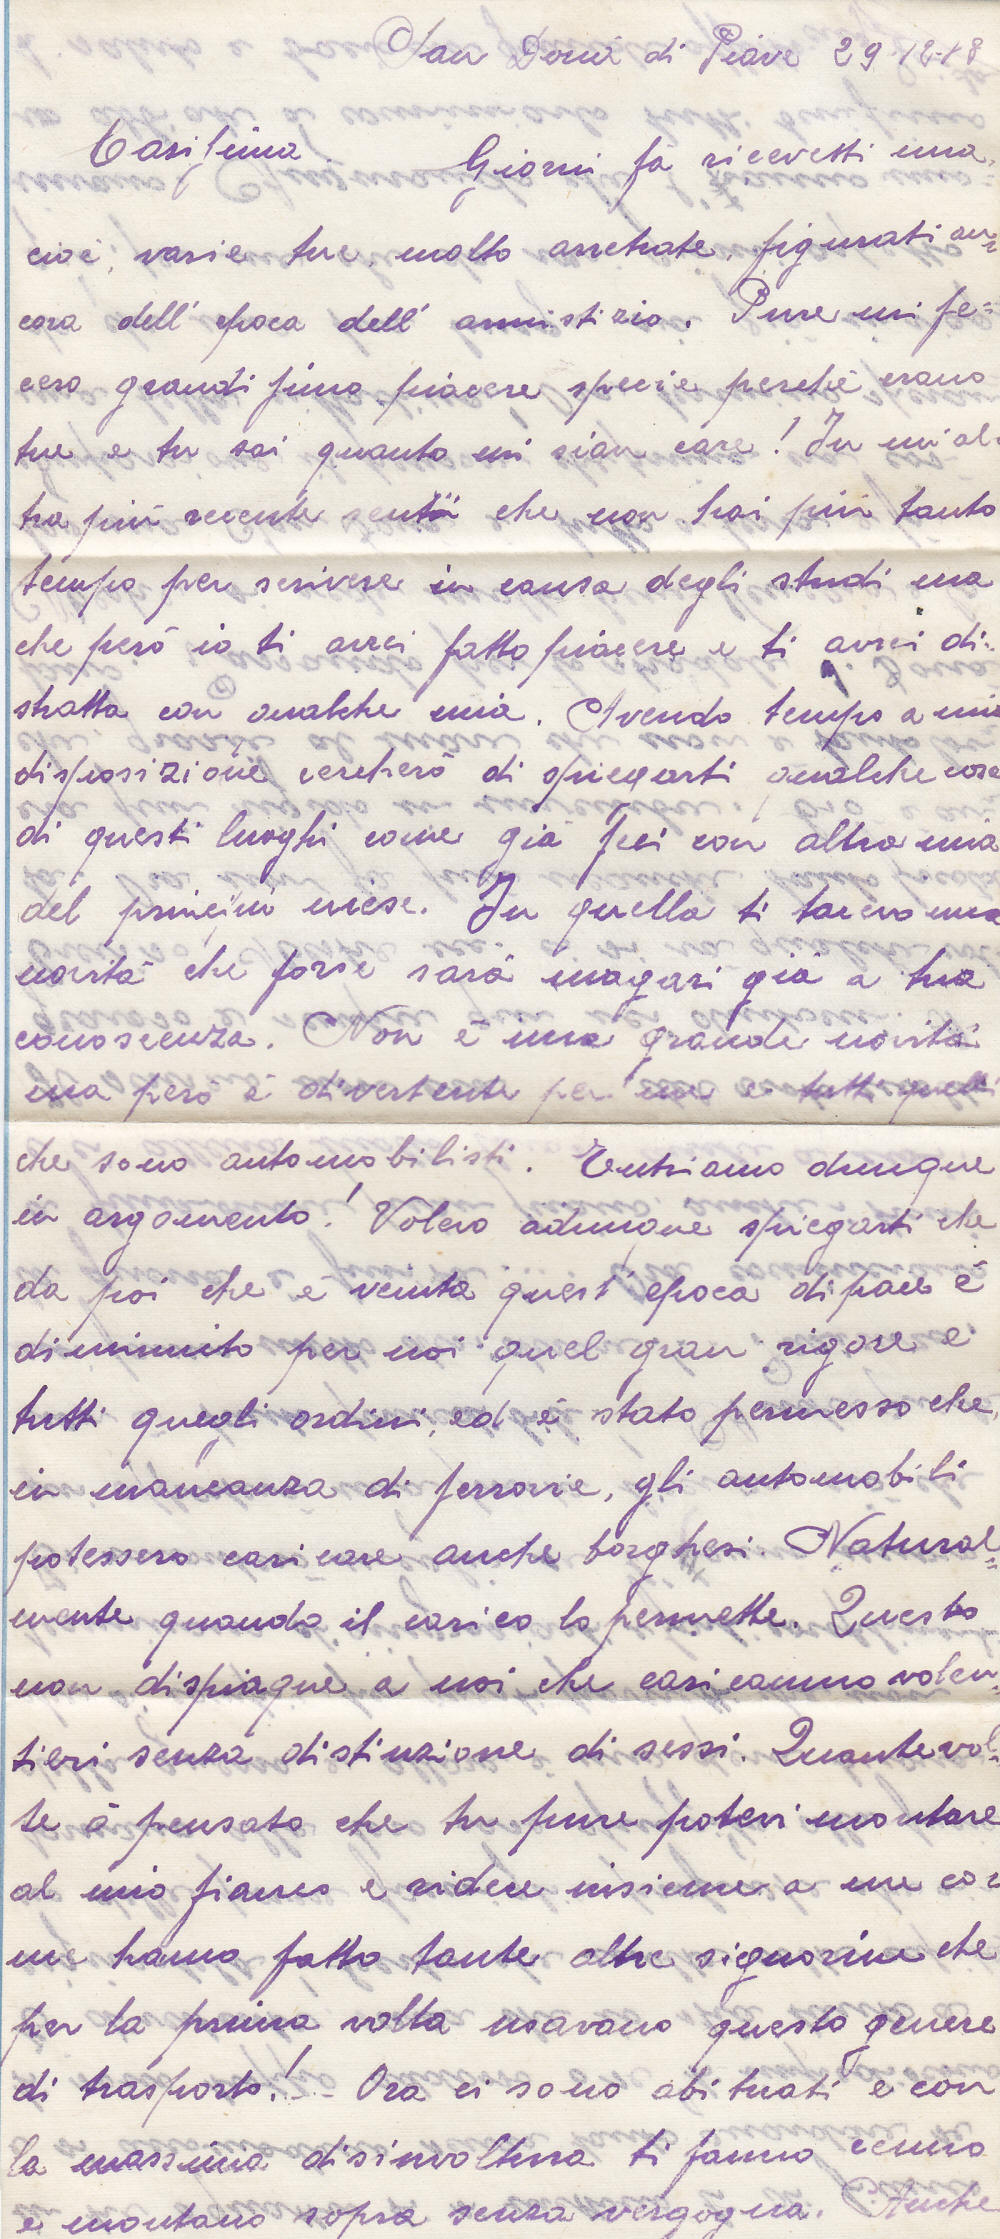 San Donà di Piave 29-12-18
Carissima Giorni fà ricevetti una,
cioè, varie tue, molto arretrate, figurati an=
cora dell'epoca dell'armistizio. Pure mi fe=
cero grandissimo piacere specie perchè erano
tue e tu sai quanto mi sian care! In un'al-
tra più recente sentii che non hai più tanto
tempo per scrivere in causa degli studi ma
che però io ti avrei fatto piacere e ti avrei di-
stratta con qualche mia. Avendo tempo a mia
disposizione cercherò di spiegarti qualche cosa
di questi luoghi come già feci con altra mia
del principio mese. In quella ti tacevo una
novità che forse sarà magari già a tua
conoscenza. Non è una grande novità
ma però è divertente per me e tutti quelli
che sono automobilisti. Entriamo dunque
in argomento! Volevo adunque spiegarti che
da poi che è venuta quest'epoca di pace è
diminuito per noi quel gran rigore e
tutti quegli ordini, ed è stato permesso che,
in mancanza di ferrovie, gli automobili
potessero caricare anche borghesi. Natural=
mente quando il carico lo permette. Questo
non dispiaque a noi che caricammo volen-
tieri senza distinzione di sessi. Quante vol-
te ò pensato che tu pure potevi montare
al mio fianco e ridere insieme a me co=
me hanno fatto tante altre signorine che
per la prima volta usavano questo genere
di trasporto!-- Ora ci sono abituati e con
la massima disinvoltura ti fanno cenno
e montano sopra senza vergogna. Anche